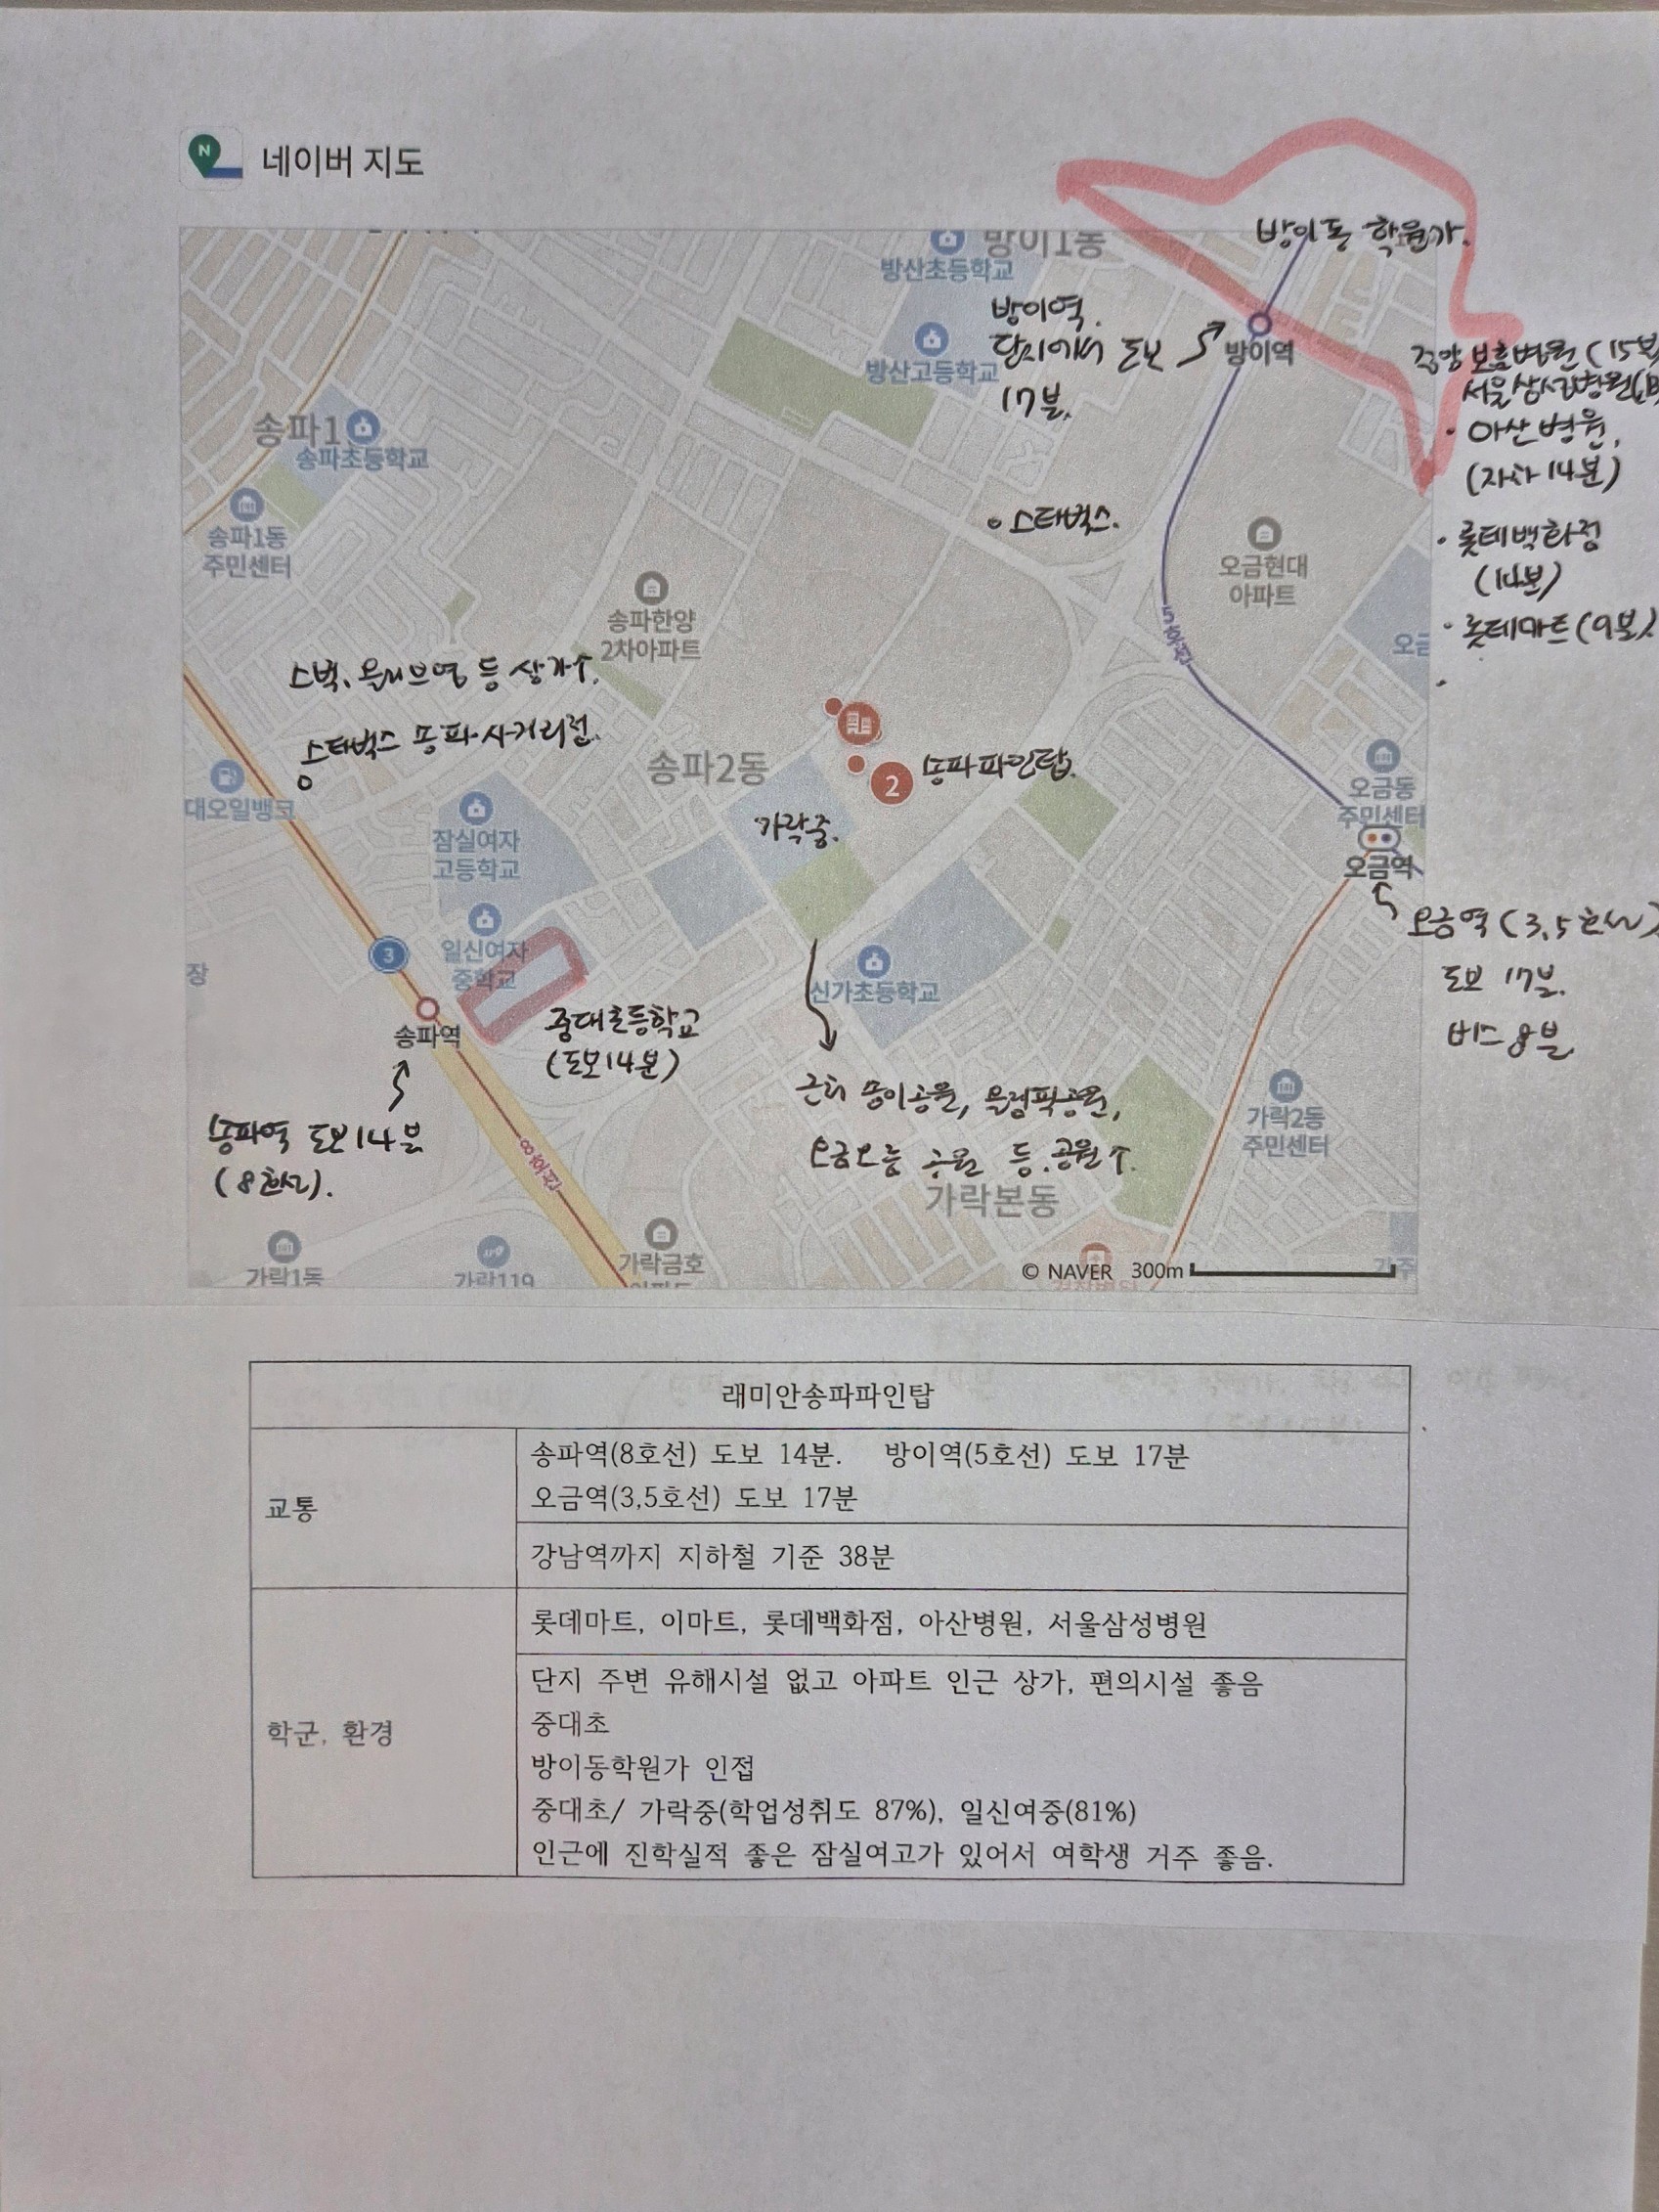 네이버 지도
방이1동
방산초등학교
방이동 학원가.
방이역.
단지에서 도보
17분.
방이역
방산고등학교
중앙보훈병원(15분
서울삼성병원(
· 아산병원.
(자차 14분)
· 롯데백화점
(14분)
· 롯데마트(9분).
송파1
송파초등학교
송파1동
주민센터
스타벅스.
오금현대
아파트
5호선
오금
송파한양
2차아파트
스벅, 올리브영 등 상가↑.
스타벅스 송파사거리점.
송파2동
2
송파파인탑.
가락중.
대오일뱅크
잠실여자
고등학교
오금동
주민센터
오금역
오금역(3,5호선)
도보 17분.
버스 8분
일신여자
중학교
3
장
신가초등학교
송파역
중대초등학교
(도보14분)
송파역 도보14분
(8호선).
8호선
근처 송이공원, 올림픽공원,
오금오름 공원 등 공원↑.
가락2동
주민센터
가락본동
가락1동
가락119
가락금호
© NAVER 300m
래미안송파파인탑
교통
송파역(8호선) 도보 14분. 방이역(5호선) 도보 17분
오금역(3,5호선) 도보 17분
강남역까지 지하철 기준 38분
학군, 환경
롯데마트, 이마트, 롯데백화점, 아산병원, 서울삼성병원
단지 주변 유해시설 없고 아파트 인근 상가, 편의시설 좋음
중대초
방이동학원가 인접
중대초/ 가락중(학업성취도 87%), 일신여중(81%)
인근에 진학실적 좋은 잠실여고가 있어서 여학생 거주 좋음.